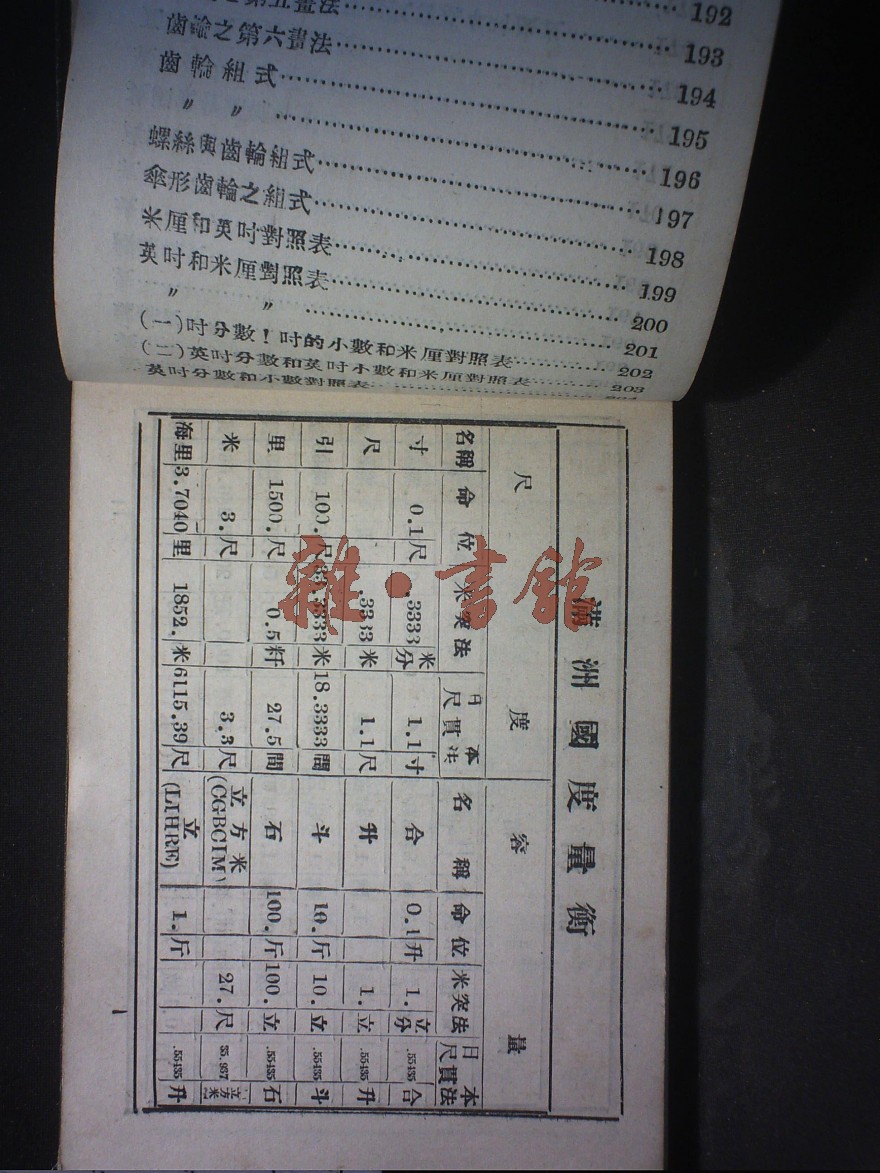 第五畫法 192
齒輪之第六畫法 193
齒輪組式 194
〃 〃 195
螺絲與齒輪組式 196
傘形齒輪之組式 197
米厘和英吋對照表 198
英吋和米厘對照表 199
〃 〃 200
(一)吋分數!吋的小數和米厘對照表 201
(二)英吋分數和英吋小數和米厘對照表 202
英吋分數和小數對照表 203
滿洲國度量衡
尺度 容量
名稱 命位 米突法 日本尺貫法 名稱 命位 米突法 日本尺貫法
寸 0.1尺 .3333米分 1.1寸 合 0.1升 1.立分 .55435合
尺 .3333米 1.1尺 升 1.立 .55435升
引 100.尺 33.3333米 18.3333間 斗 10.斤 10.立 .55435斗
里 1500.尺 0.5粁 27.5間 石 100.斤 100.立 .55435石
米 3.尺 3.3尺 立方米(CGBCIM) 27.尺 35.937立方米
海里 3.7040里 1852.米 6115.39尺 立(LIHRE) 1.斤 .55435升
1
雜·書館